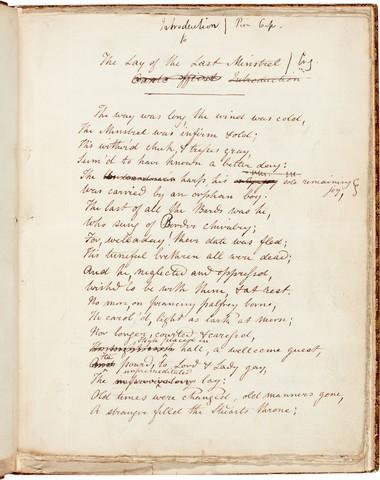 Introduction /
to
The Lay of the Last Minstrel /
Introduction
The way was long, the wind was cold,
The Minstrel was infirm & old;
His wither'd cheek, & tresses gray,
Seem'd to have known a better day:
The harp, his sole remaining joy,
Was carried by an orphan boy.
The last of all the Bards was he,
Who sung of Border chivalry;
For, welladay! their date was fled;
His tuneful brethren all were dead;
And he, neglected and oppressed,
Wish'd to be with them, & at rest.
No more, on prancing palfrey borne,
He carol'd, light as lark at morn;
No longer, courted & caress'd,
High placed in hall, a wellcome guest,
He pour'd, to Lord & Lady gay,
The unpremeditated lay:
Old times were changed, old manners gone,
A stranger filled the Stuarts throne;